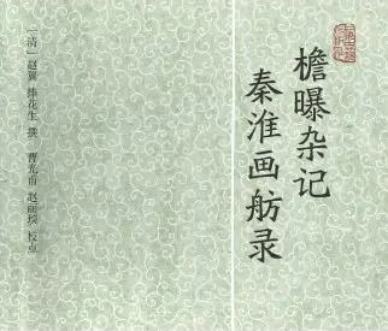 檐曝杂记
秦淮画舫录
［清］赵翼 捧花生 撰 曹光甫 赵丽琰 校点